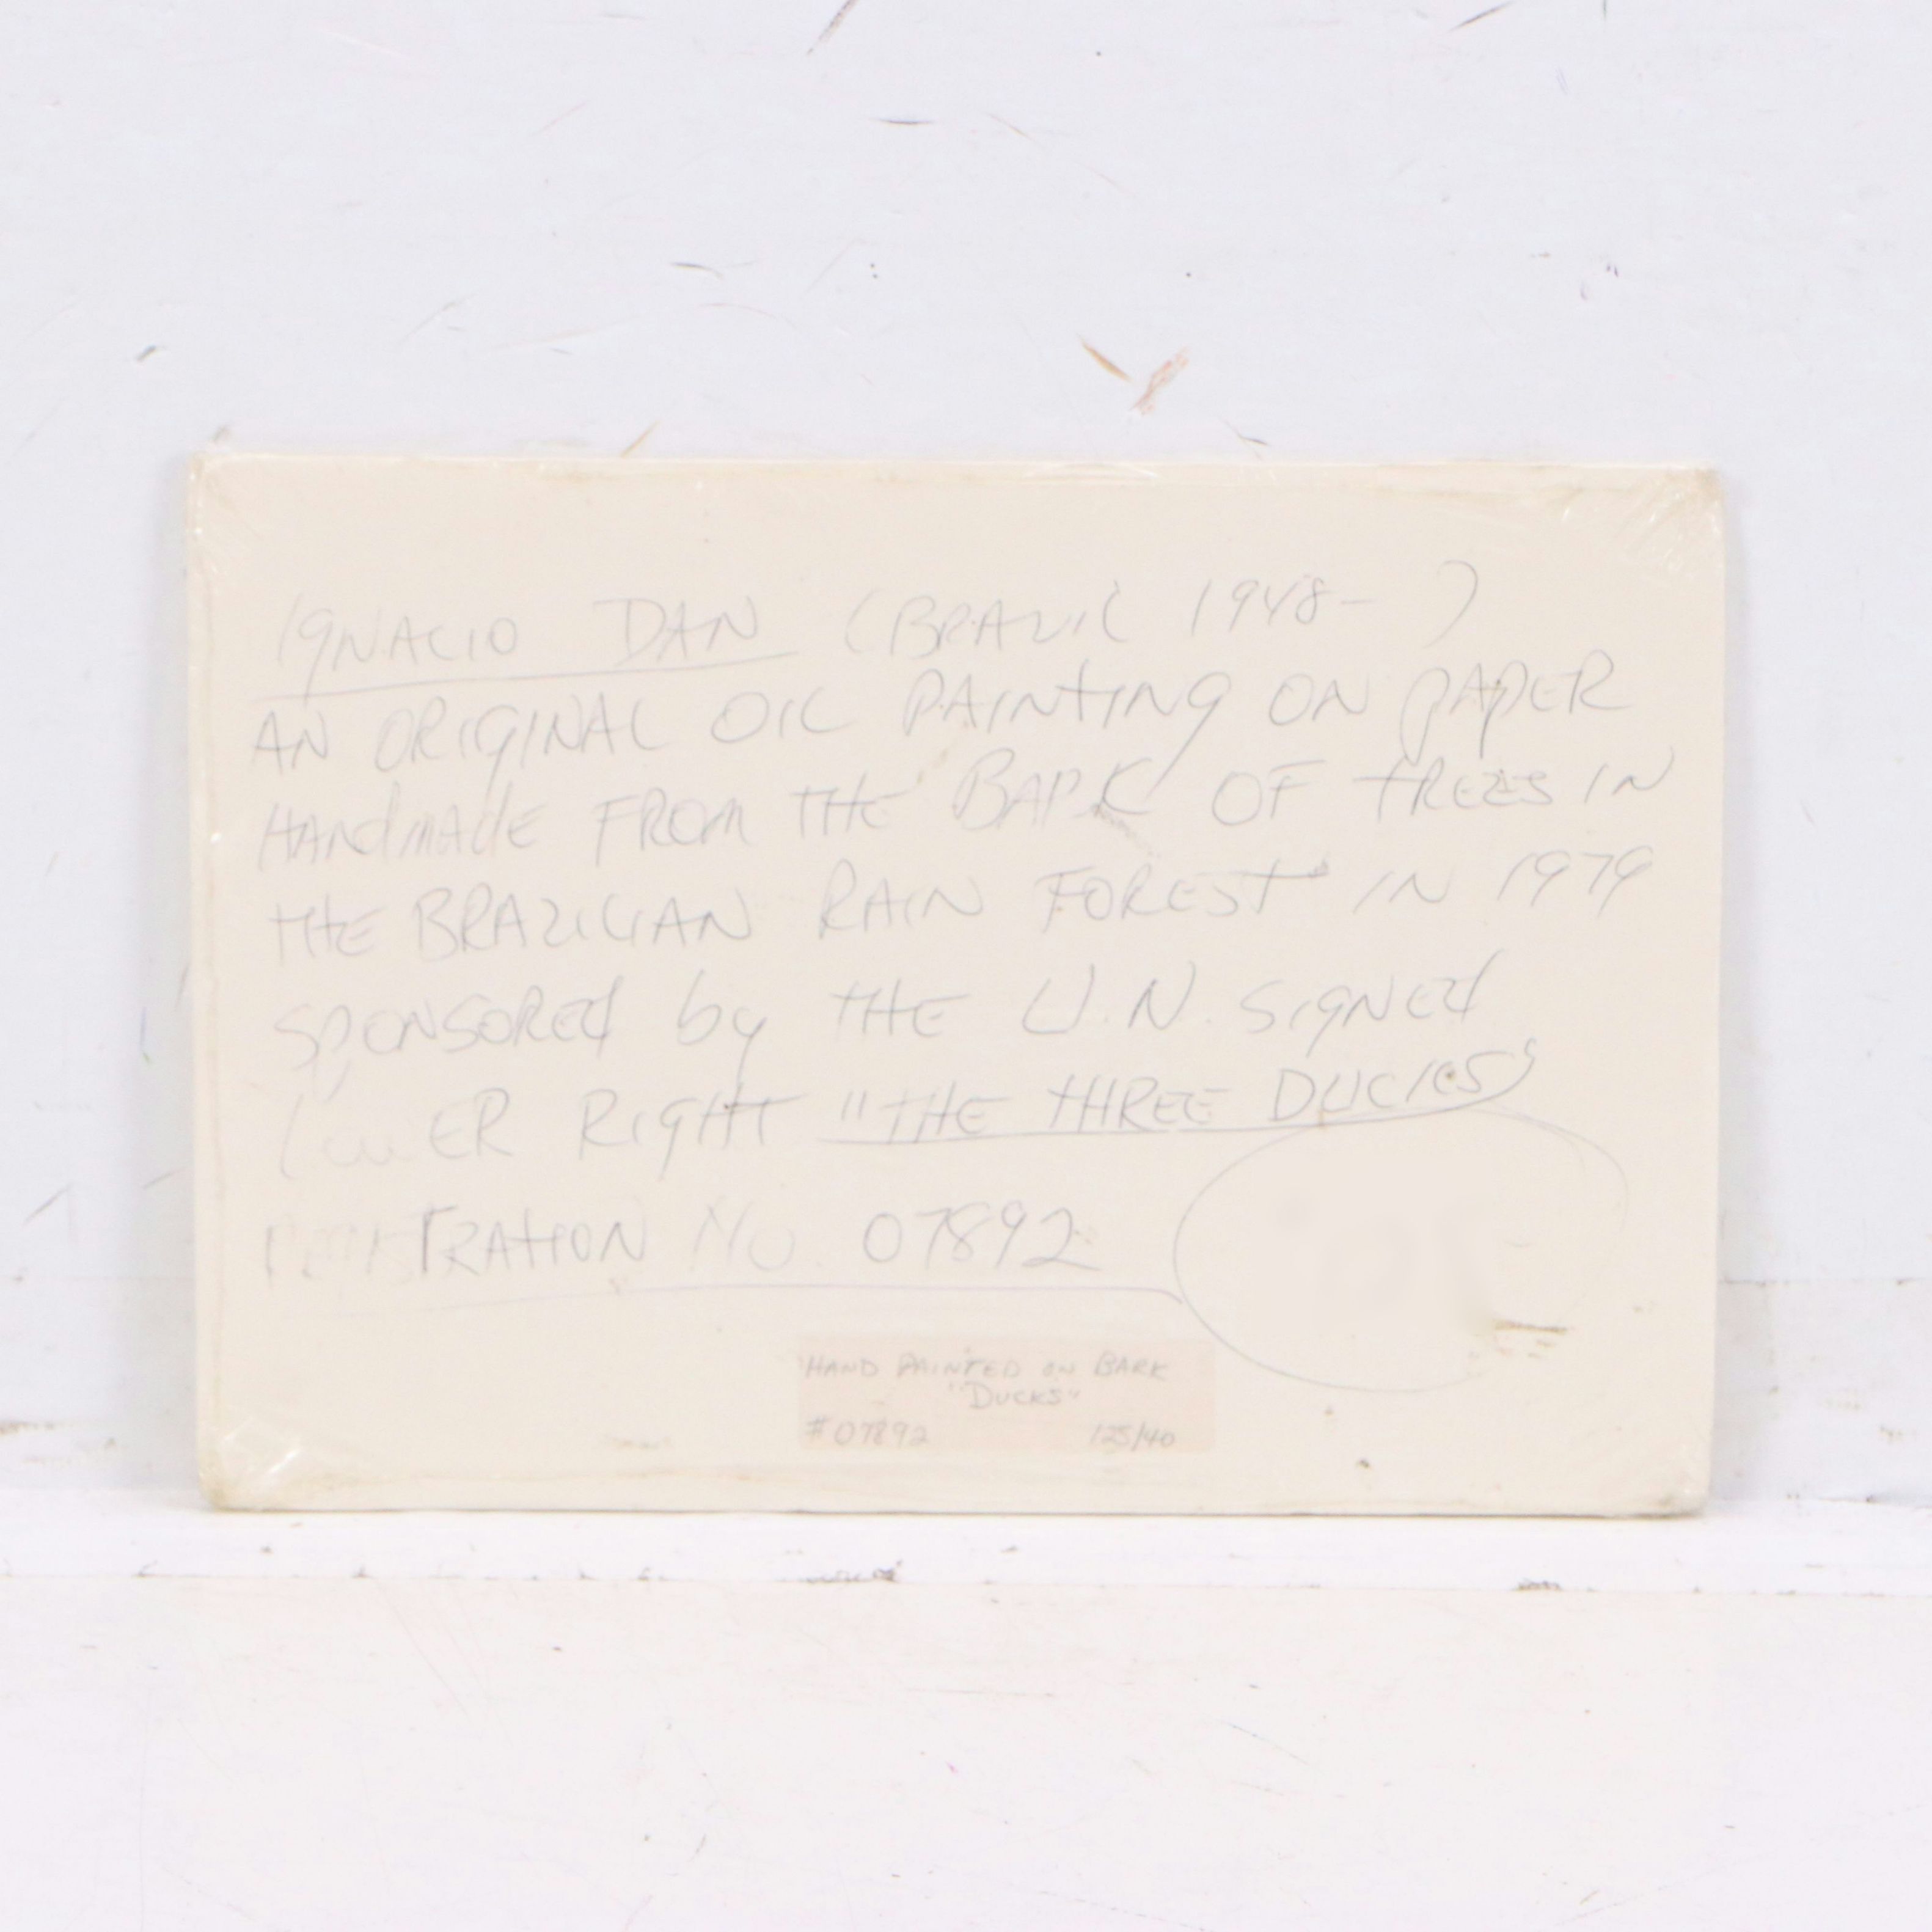 IGNACIO DAN (BRAZIL 1948- )
AN ORIGINAL OIL PAINTING ON PAPER
HANdMAdE FROM THE BARK OF TREES IN
THE BRAZILIAN RAIN FOREST IN 1979
SPONSOREd by THE U.N. SIGNEd
LOWER RIGHT "THE THREE DUCKS"
REGISTRATION NO. 07892
HAND PAINTED ON BARK
"DUCKS"
#07892 125/40